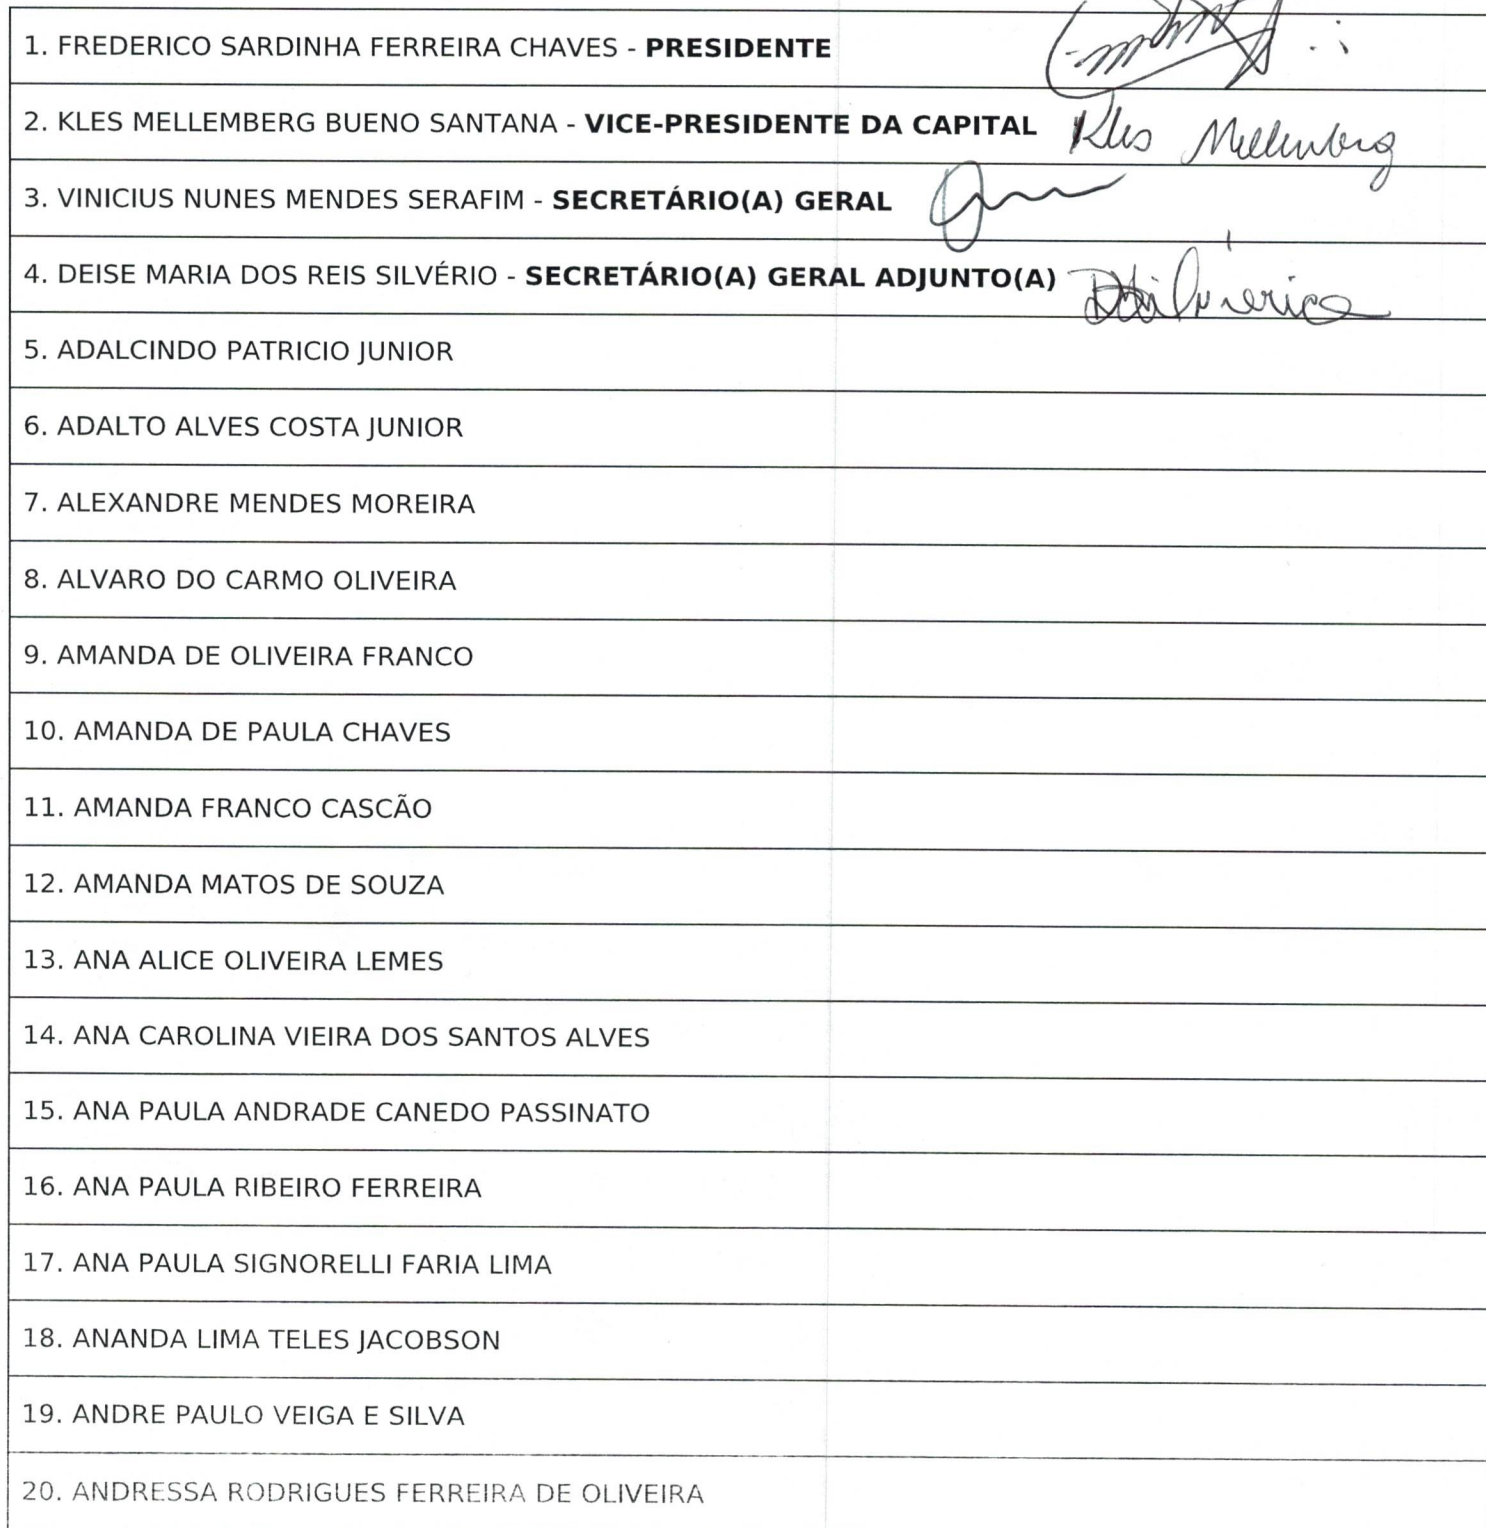 1. FREDERICO SARDINHA FERREIRA CHAVES - PRESIDENTE
2. KLES MELLEMBERG BUENO SANTANA - VICE-PRESIDENTE DA CAPITAL Kles Mellemberg
3. VINICIUS NUNES MENDES SERAFIM - SECRETÁRIO(A) GERAL
4. DEISE MARIA DOS REIS SILVÉRIO - SECRETÁRIO(A) GERAL ADJUNTO(A)
5. ADALCINDO PATRICIO JUNIOR
6. ADALTO ALVES COSTA JUNIOR
7. ALEXANDRE MENDES MOREIRA
8. ALVARO DO CARMO OLIVEIRA
9. AMANDA DE OLIVEIRA FRANCO
10. AMANDA DE PAULA CHAVES
11. AMANDA FRANCO CASCÃO
12. AMANDA MATOS DE SOUZA
13. ANA ALICE OLIVEIRA LEMES
14. ANA CAROLINA VIEIRA DOS SANTOS ALVES
15. ANA PAULA ANDRADE CANEDO PASSINATO
16. ANA PAULA RIBEIRO FERREIRA
17. ANA PAULA SIGNORELLI FARIA LIMA
18. ANANDA LIMA TELES JACOBSON
19. ANDRE PAULO VEIGA E SILVA
20. ANDRESSA RODRIGUES FERREIRA DE OLIVEIRA